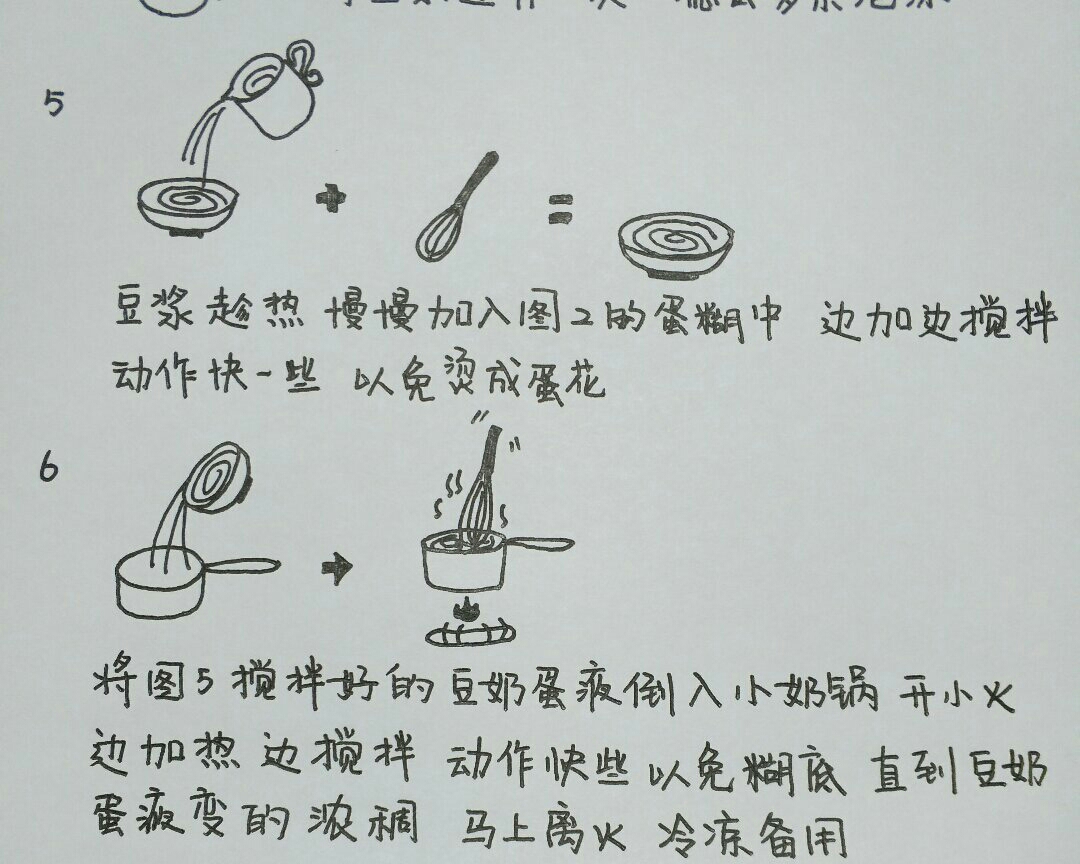 5
豆浆趁热 慢慢加入图2的蛋糊中 边加边搅拌
动作快一些 以免烫成蛋花
6
将图5搅拌好的豆奶蛋液倒入小奶锅 开小火
边加热 边搅拌 动作快些以免糊底 直到豆奶
蛋液变的浓稠 马上离火 冷冻备用